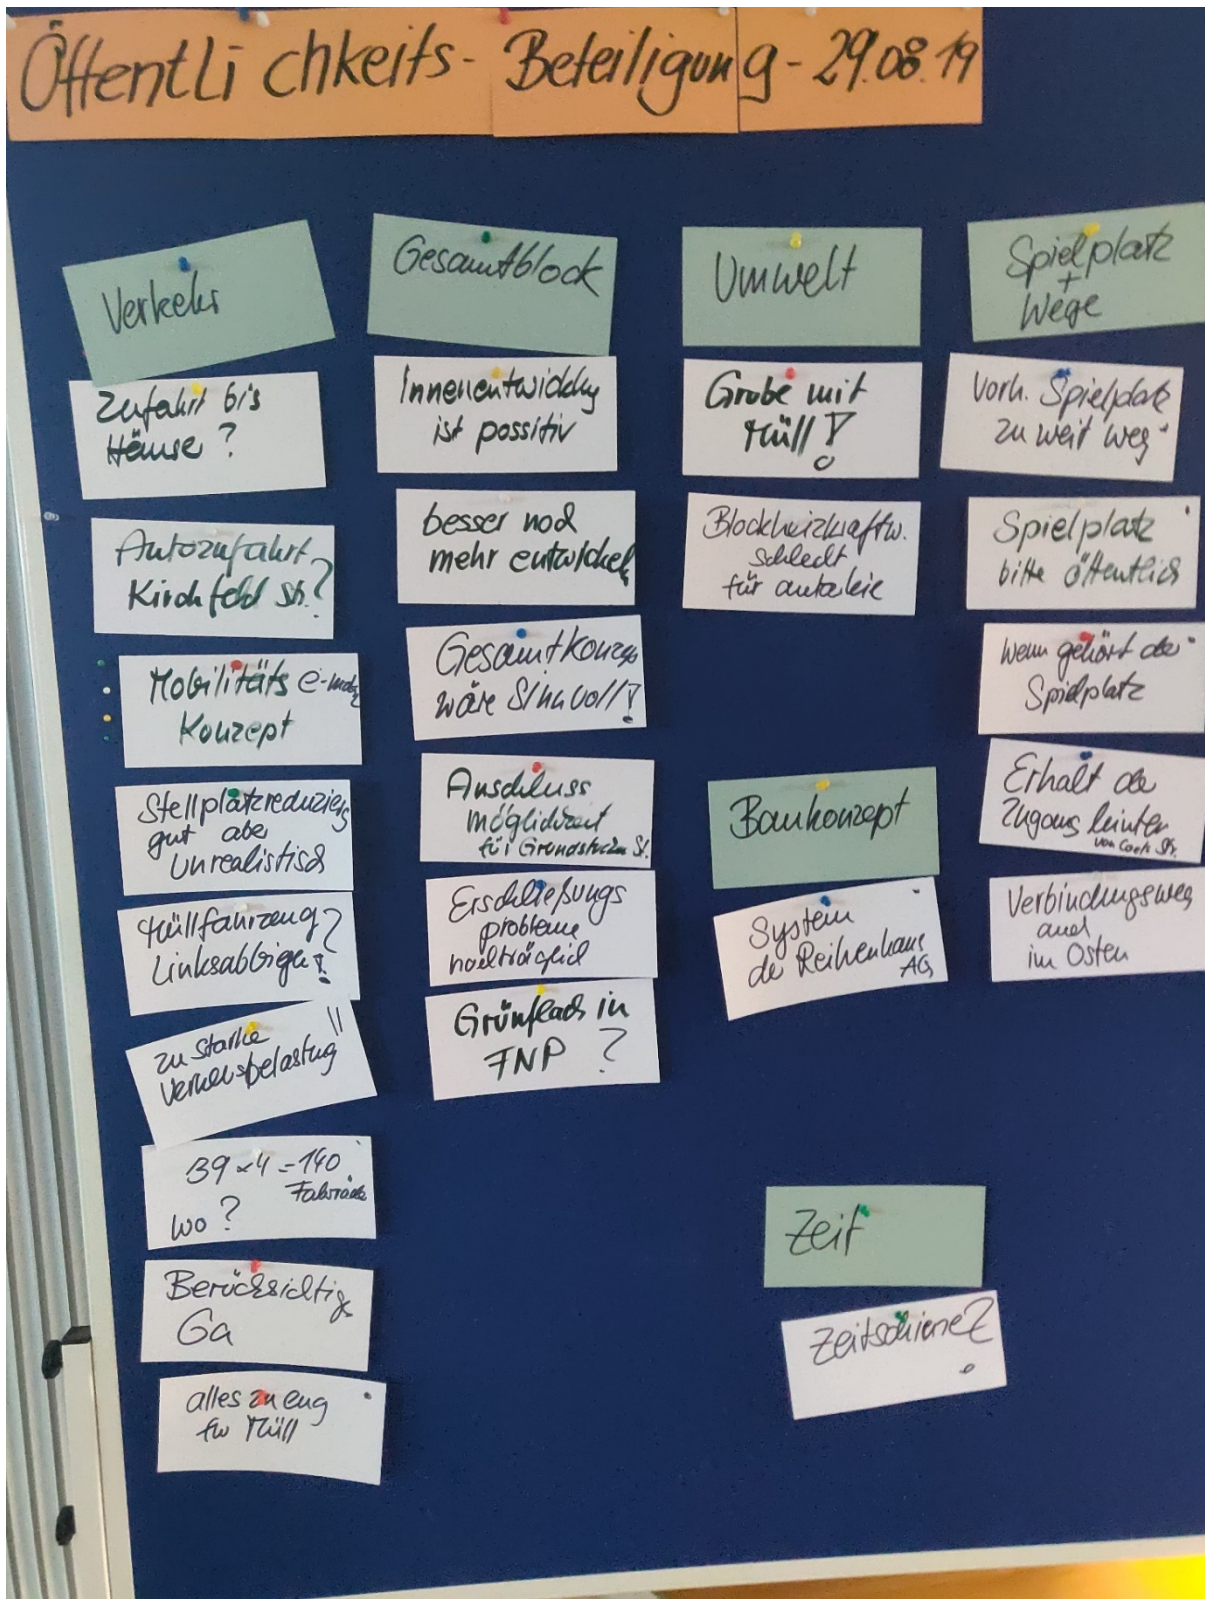 Öffentlichkeits- Beteiligung - 29.08.19
Verkehr
Zufahrt bis
Häuser ?
Autozufahrt
Kirchfeld Str.?
Mobilitäts e-
Konzept
Stellplatzreduzierg
gut aber
Unrealistisch
Müllfahrzeug?
Linksabbiger!
zu starke
Verkehrsbelastung"
39 x 4 = 140
Fahrräder
wo ?
Berücksichtig.
Ga
alles zu eng
für Müll
Gesamtblock
Innenentwicklg
ist possitiv
besser noch
mehr entwickeln
Gesamtkonzept
wäre Sinnvoll!
Anschluss
möglichkeit
für Grundstücke Str.
Erschließungs
probleme
nachträglich
Grünflach in
FNP ?
Umwelt
Grube mit
Müll!
Blockheizkraftw.
schlecht
für autarkie
Baukonzept
System
der Reihenhaus
AG
Zeit
Zeitschiene?
Spielplatz
+
Wege
Vorh. Spielplatz
zu weit weg
Spielplatz
bitte öffentlich
Wem gehört der
Spielplatz
Erhalt der
Zugang hinten
von Str.
Verbindungsweg
auch
im Osten